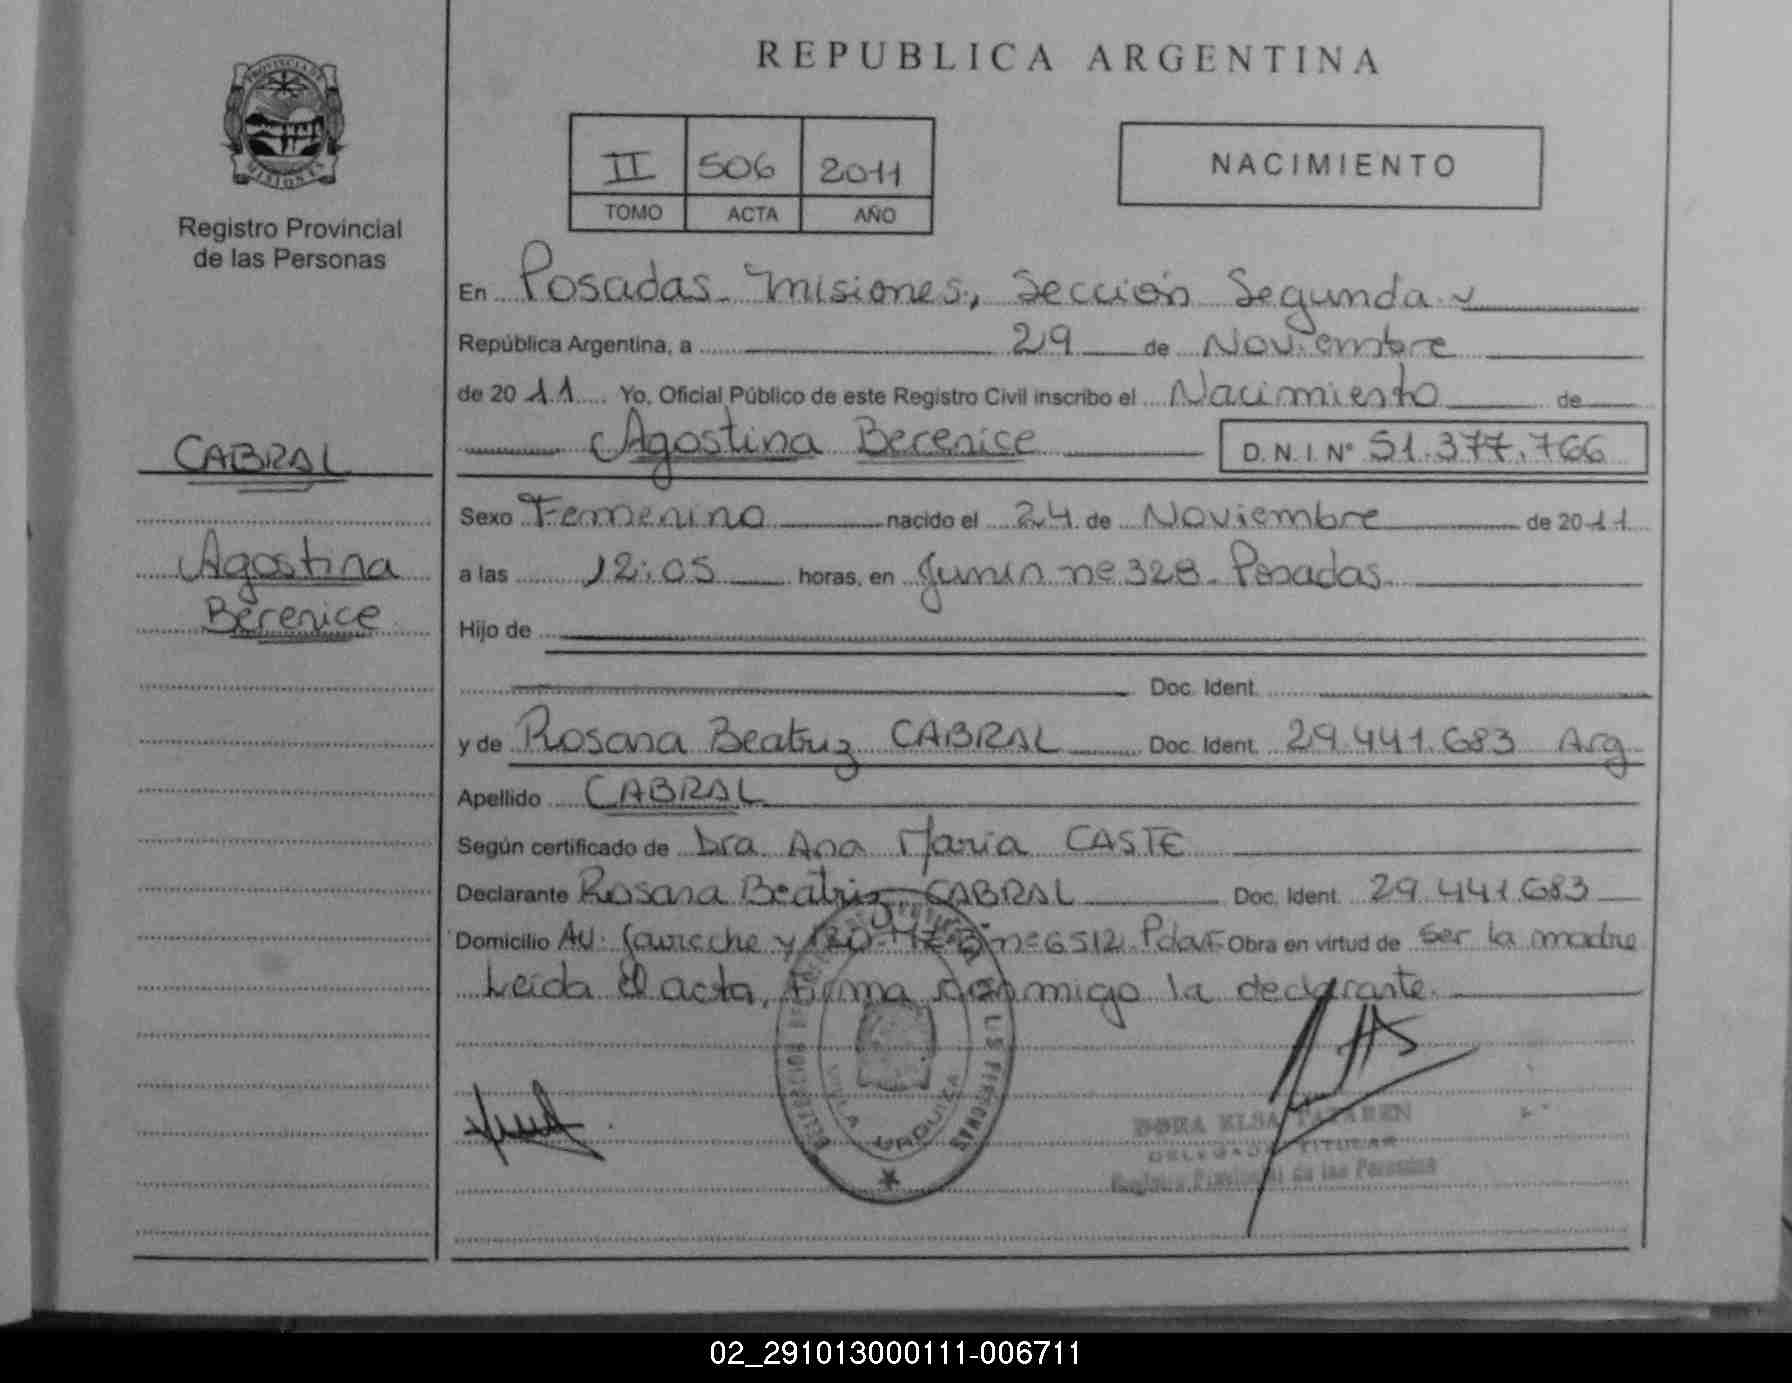 REPUBLICA ARGENTINA
PROVINCIA DE
MISIONES
Registro Provincial
de las Personas
II 506 2011
TOMO ACTA AÑO
NACIMIENTO
En Posadas Misiones, Sección Segunda
República Argentina, a 29 de Noviembre
de 2011 Yo, Oficial Público de este Registro Civil inscribo el Nacimiento de
Agostina Berenice D. N. I. Nº 51.377.766
CABRAL
Agostina
Berenice
Sexo Femenino nacido el 24 de Noviembre de 2011
a las 12:05 horas, en Junin nº 328 Posadas
Hijo de
Doc. Ident.
y de Rosana Beatriz CABRAL Doc. Ident. 29.441.683 Arg
Apellido CABRAL
Según certificado de Dra Ana Maria CASTE
Declarante Rosana Beatriz CABRAL Doc. Ident. 29.441.683
Domicilio Av. y nº 6512 Obra en virtud de Ser la madre
Leida el acta, firma conmigo la declarante.
VILLA URQUIZA
DORA ELSA
DELEGADA TITULAR
Registro Provincial de las Personas
02_291013000111-006711